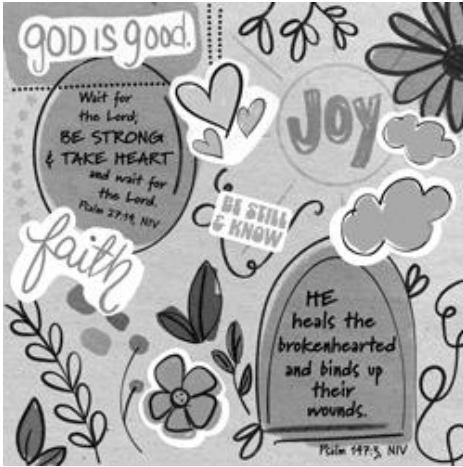 GOD IS GOOD.
Wait for
the Lord;
BE STRONG
& TAKE HEART
and wait for
the Lord.
Psalm 27:14, NIV
JOY
BE STILL
& KNOW
faith
HE
heals the
brokenhearted
and binds up
their
wounds.
Psalm 147:3, NIV